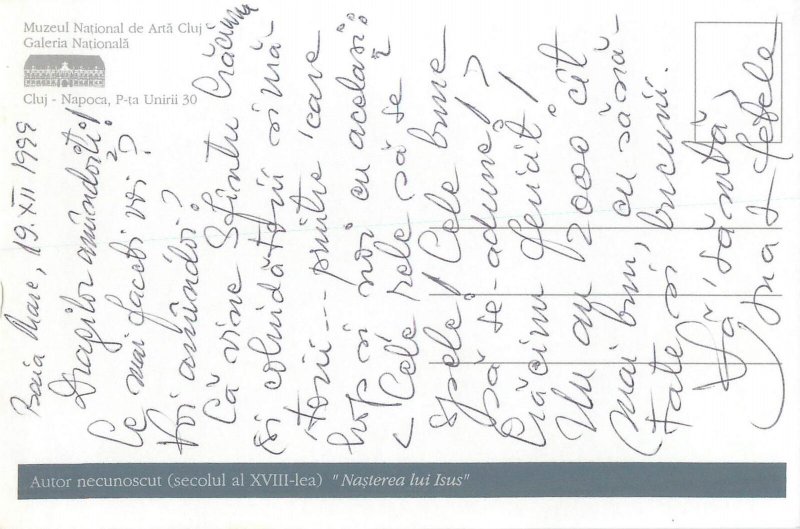 Muzeul Național de Artă Cluj
Galeria Națională
Cluj - Napoca, P-ța Unirii 30
Baia Mare, 19.XII 1999
Dragilor amândoi!
Ce mai faceți voi?
Voi amândoi?
Că vine Sfîntu Crăciun
și colindătorii și mă-
torii --- printre care
hop și noi cu același:
< Cele rele să se
spele! Cele bune
să se-adune! >
Crăciun fericit!
Un an 2000 cît
mai bun, cu sănă-
tate și bucurii.
Vă sărută,
Ina + fetele
Autor necunoscut (secolul al XVIII-lea) "Nașterea lui Isus"